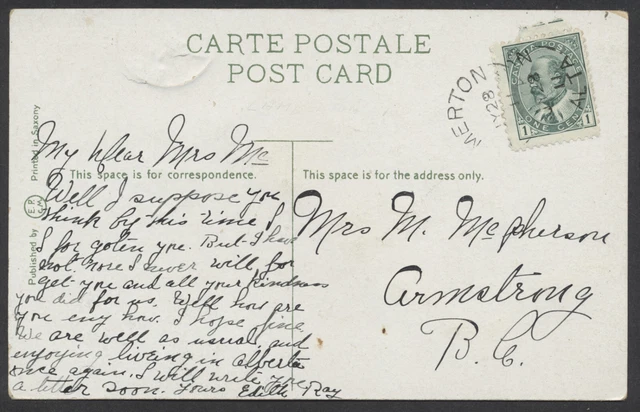 CARTE POSTALE
POST CARD
CANADA POSTAGE
1 ONE CENT 1
MERTON
28
11
ALTA
Printed in Saxony
Published by E.P. & Co.
This space is for correspondence.
This space is for the address only.
My Dear Mrs Mc
Well I suppose you
think by this time I
I for goten you. But I have
not. nore I never will for
get you and all your kindness
you did for us. Well how are
you eny how. I hope fine
We are well as usual and
enjoying liveing in Alberta
once again. I will write you
a letter soon. Yours Edith Ray
Mrs M. McPherson
Armstrong
B. C.